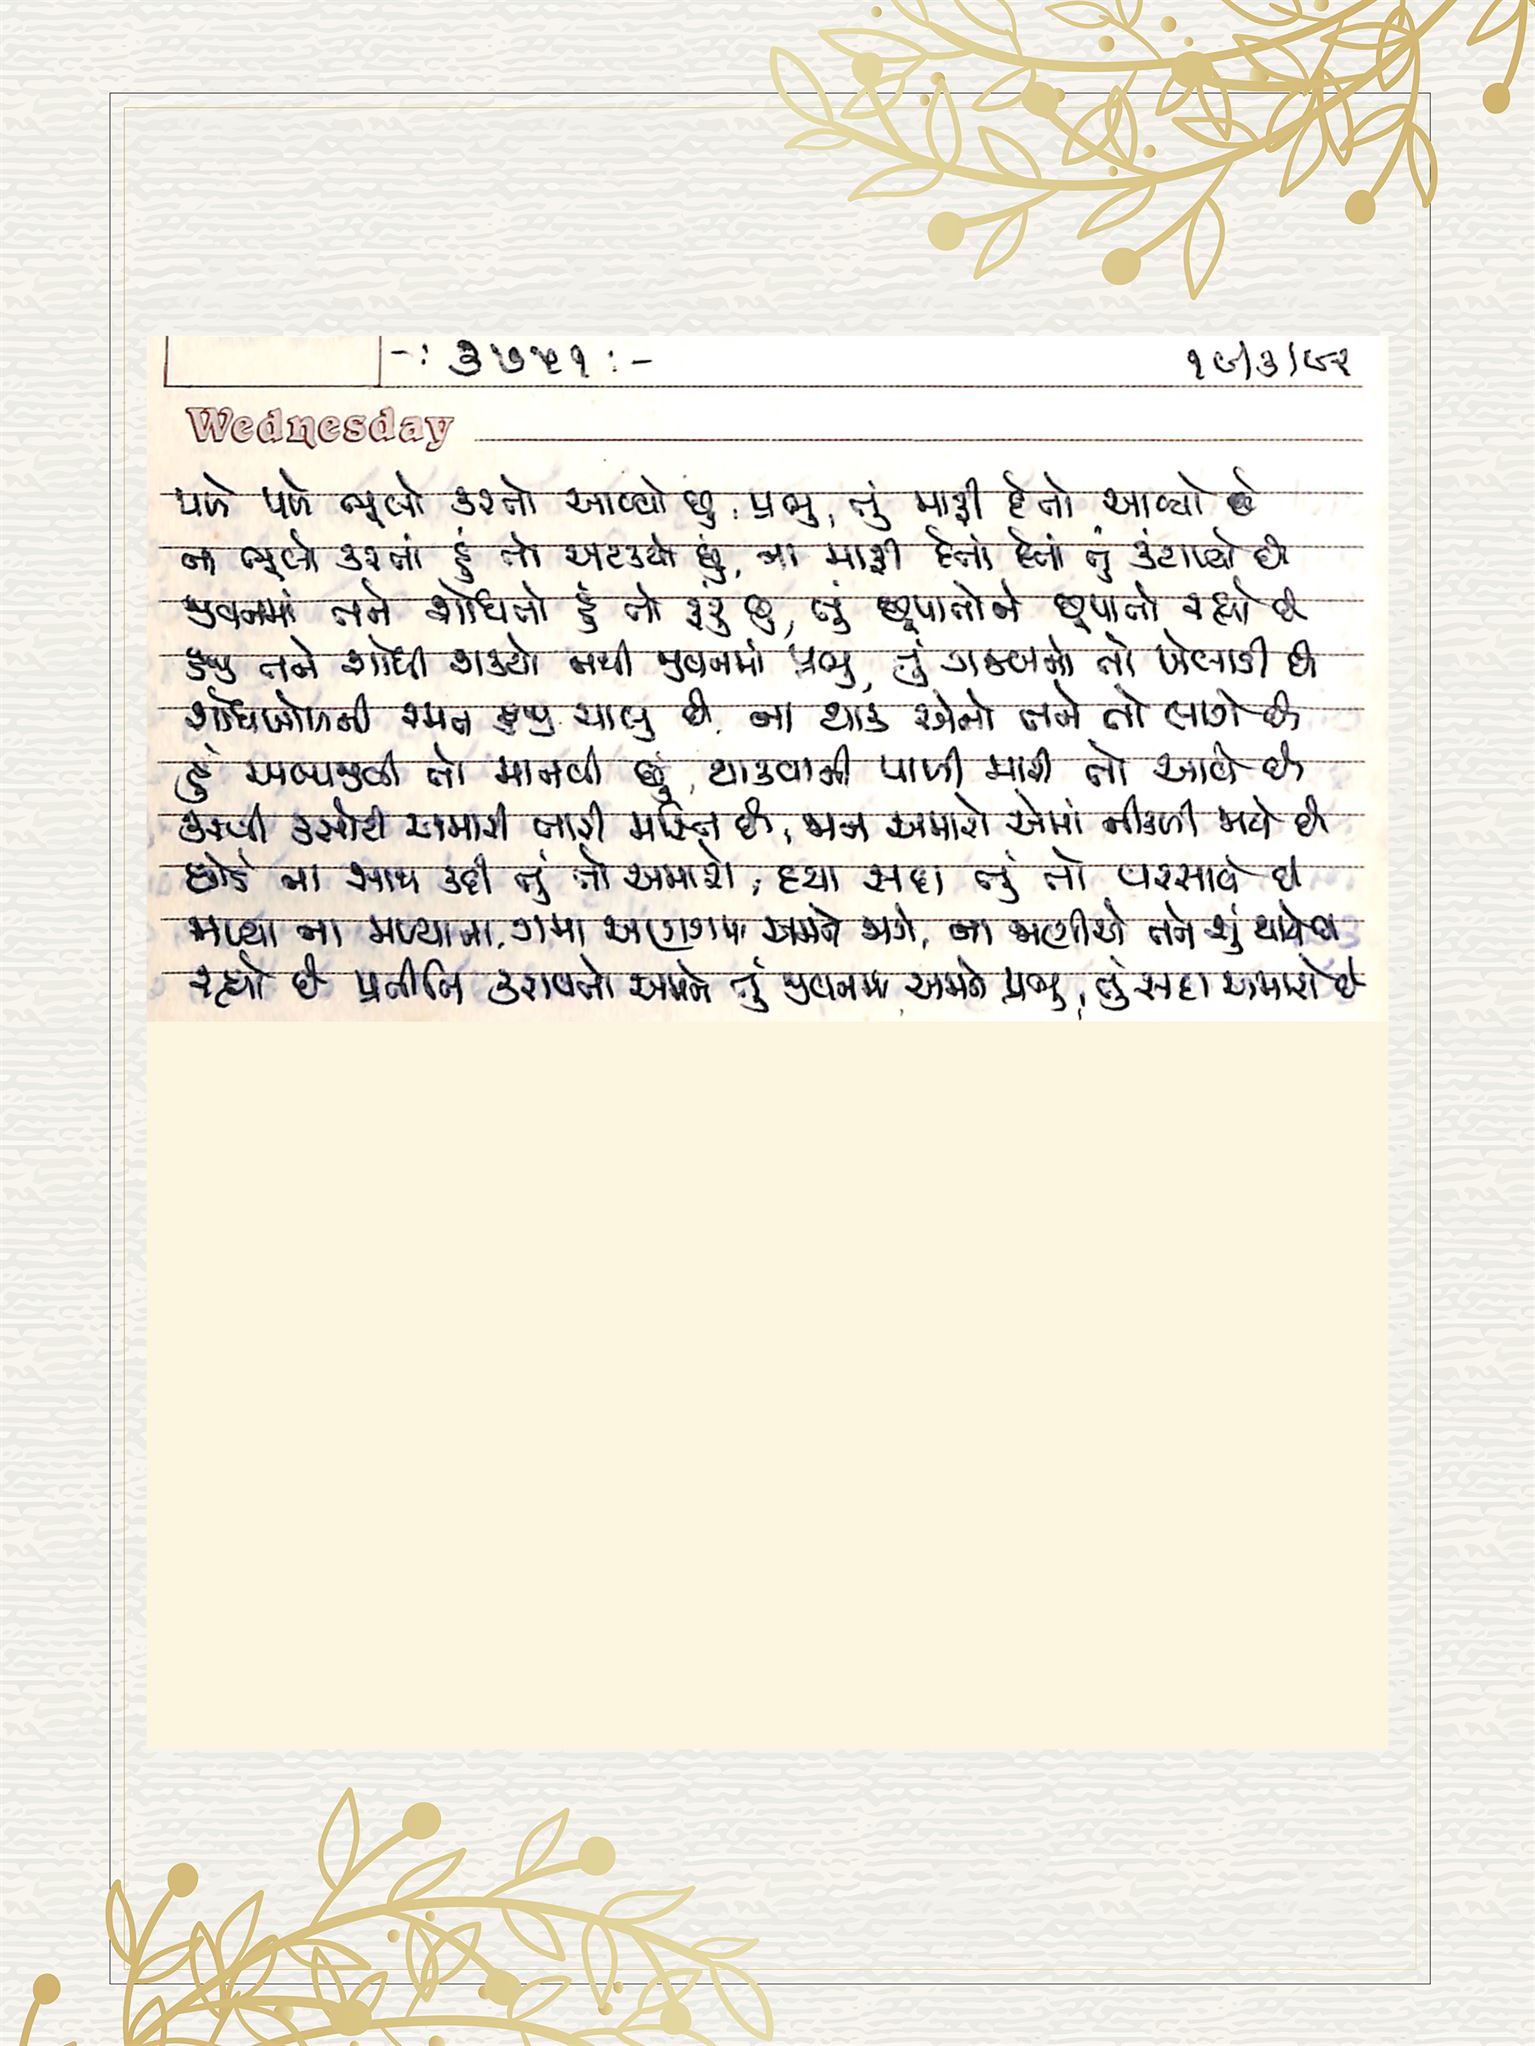 -: ૩૭૫૧ :- ૧૯/૩/૯૨
Wednesday
પળે પળે ભૂલો કરતો આવ્યો છું, પ્રભુ, તું માફી દેતો આવ્યો છે
ના ભૂલો કરતાં હું તો અટક્યો છું, ના માફી દેતો દેતાં તું કંટાળ્યો છે
જીવનમાં તને શોધતો હું તો ફરું છું, તું છૂપાતોને છૂપાતો રહ્યો છે
હજી તને શોધી શક્યો નથી જીવનમાં પ્રભુ, તું ગજબનો તો ખેલાડી છે
શોધખોળની રમત હજી ચાલુ છે, ના થાક એનો તને તો લાગે છે
હું અલ્પજીવી તો માનવી છું, થાકવાની પાળી મારી તો આવે છે
કરવી કસોટી અમારી તારી મસ્તિ છે, જાન અમારો એમાં નીકળી જાયે છે
છોડે ના સાથ કદી તું તો અમારો, દયા સદા તું તો વરસાવે છે
મળ્યા ના મળ્યાના, અમને જાગે, ના જાણીએ તને શું થાયે છે
રહ્યો છે પ્રતીતિ કરાવતો અમને તું જીવનમાં અમને પ્રભુ, તું સદા અમારો છે